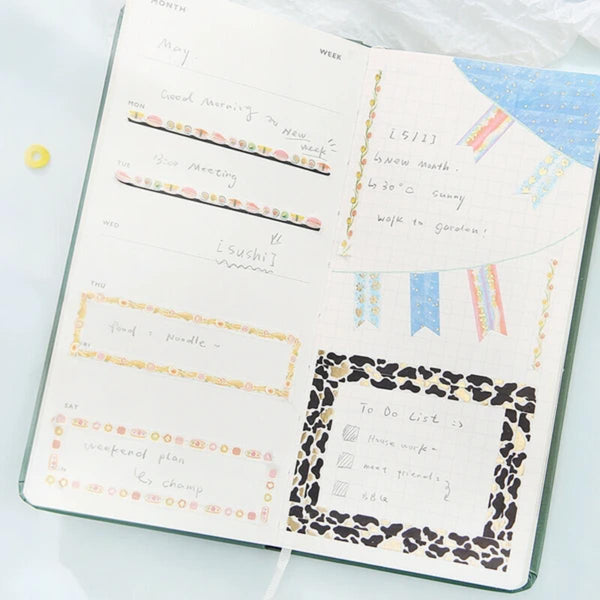 MONTH
May.
WEEK
MON
Good Morning
New week
TUE
13:00 Meeting
WED
[sushi]
THU
food : Noodle ~
FRI
SAT
weekend plan
↳ champ
[5/1]
↳ New month.
↳ 30°C sunny
walk to garden!
To Do List :>
House work~
meet friends
BBQ